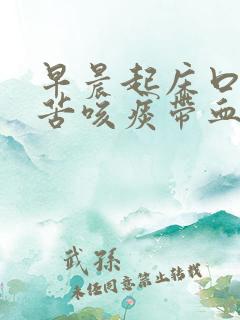 早晨起床口
苦咳痰带血
武孙
未经同意禁止转载